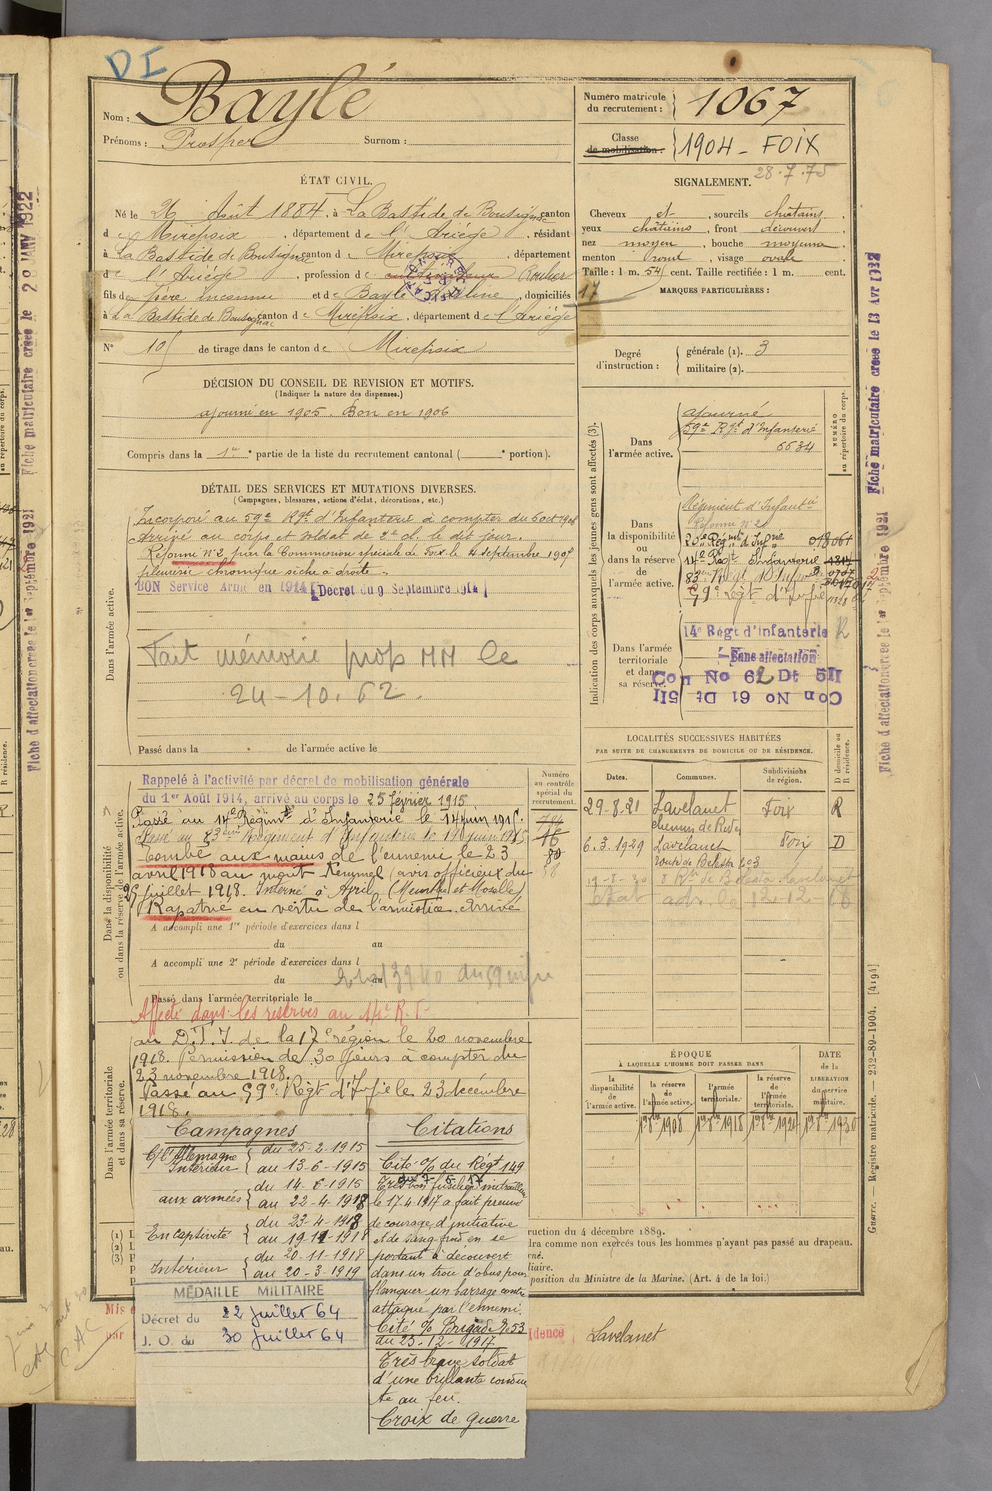 DI
Nom : Baylé
Prénoms : Prosper Surnom :
Numéro matricule
du recrutement : 1067
Classe
de mobilisation : 1904 - FOIX
28.7.75
ÉTAT CIVIL.
Né le 26 Août 1884, à La Bastide de Bousignac canton
d e Mirepoix, département de l'Ariége, résidant
à La Bastide de Bousignac canton d e Mirepoix, département
d e l'Ariége, profession de cultivateur Roulier
fils de père inconnu et de Baylé, domiciliés
à La Bastide de Bousignac canton d e Mirepoix, département d e l'Ariége
N° 10 de tirage dans le canton d e Mirepoix
SIGNALEMENT.
Cheveux et, sourcils châtains,
yeux châtains, front découvert
nez moyen, bouche moyenne,
menton rond, visage ovale
Taille : 1 m. 54 cent. Taille rectifiée : 1 m. cent.
17
MARQUES PARTICULIÈRES :
Degré
d'instruction : générale (1). 3
militaire (2).
DÉCISION DU CONSEIL DE REVISION ET MOTIFS.
(Indiquer la nature des dispenses.)
ajourné en 1905. Bon en 1906
Compris dans la 1re partie de la liste du recrutement cantonal ( e portion).
DÉTAIL DES SERVICES ET MUTATIONS DIVERSES.
(Campagnes, blessures, actions d'éclat, décorations, etc.)
Dans l'armée active.
Incorporé au 59e Rgt d'Infanterie à compter du 6 oct 1906
Arrivé au corps et soldat de 2e cl. le dit jour.
Réformé N°2 par la Commission spéciale de Foix le 4 septembre 1907
pleurésie chronique sèche à droite.
BON Service Armé en 1914 (Décret du 9 Septembre 1914)
Fait mémoire prop MM le
24-10.62.
Passé dans la de l'armée active le
Indication des corps auxquels les jeunes gens sont affectés (3).
NUMÉRO
au répertoire du corps.
Dans
l'armée active.
ajourné
59e Rgt d'Infanterie
6634
Dans
la disponibilité
ou
dans la réserve
de
l'armée active.
Régiment d'Infanterie
Réforme N°2
14e Regt Infanterie
83e Regt d'Infrie
59e Regt d'Infrie
Dans l'armée
territoriale
et dans
sa réserve.
14e Régt d'Infanterie R
Sans affectation
Con No 62 Dt 5II
Con No 61 Dt 5II
LOCALITÉS SUCCESSIVES HABITÉES
PAR SUITE DE CHANGEMENTS DE DOMICILE OU DE RÉSIDENCE.
Dates. Communes. Subdivisions
de région. D domicile ou
R résidence.
29-8-21 Lavelanet Foix R
6.3.1929 Lavelanet Foix D
19-8-30
Dans la disponibilité
ou dans la réserve de l'armée active.
Numéro
au contrôle
spécial du
recrutement.
Rappelé à l'activité par décret de mobilisation générale
du 1er Août 1914, arrivé au corps le 25 février 1915.
Passé au 14e Régimt d'Infanterie le 14 juin 1915.
Passé au 83ème Régiment d'Infanterie le 14 juin 1915
Tombé aux mains de l'ennemi le 23
avril 1918 au mont Kemmel (avis officieux du
25 juillet 1918. Interné à (Meurthe et Moselle)
Rapatrié en vertu de l'armistice. Arrivé
A accompli une 1re période d'exercices dans l
du au
A accompli une 2e période d'exercices dans l
du au
Passé dans l'armée territoriale le
Affecté dans les réserves au 14e R.I.
Dans l'armée territoriale
et dans sa réserve.
au D.T.I. de la 17e région le 20 novembre
1918. Permission de 30 jours à compter du
23 novembre 1918.
Passé au 59e Régt d'Infie le 23 décembre
1918.
ÉPOQUE
À LAQUELLE L'HOMME DOIT PASSER DANS
DATE
de la
LIBÉRATION
du service
militaire.
la
disponibilité
de
l'armée active.
la réserve
de
l'armée active.
l'armée
territoriale.
la réserve
de
l'armée
territoriale.
1er 8bre 1908 1er 8bre 1918 1er 8bre 1924 1er 8bre 1930
Campagnes
C/ Allemagne
Intérieur du 25-2-1915
au 13-6-1915
aux armées du 14-6-1915
au 22-4-1918
En captivité du 23-4-1918
au 19-11-1918
Intérieur du 20-11-1918
au 20-3-1919
MÉDAILLE MILITAIRE
Décret du 22 Juillet 64
J. O. du 30 Juillet 64
Citations
Cité O/ du Régt 149
du 7-5-17
Très bon fusilier mitrailleur
le 17.4.1917 a fait preuve
de courage, d'initiative
et de sang froid en se
portant à découvert
dans un trou d'obus pour
flanquer un barrage contre
attaque par l'ennemi.
Cité O/ Brigade N°53
du 23-12-1917
Très brave soldat
d'une brillante condui
te au feu.
Croix de guerre
ruction du 4 décembre 1889.
dra comme non exercés tous les hommes n'ayant pas passé au drapeau.
position du Ministre de la Marine. (Art. 4 de la loi.)
idence Lavelanet
Mis
par
Fiche matriculaire créée le 13 Avr 1922
Fiche d'affectation créée le 1er Septembre 1921
Guerre. — Registre matricule. — 232-89-1904. [4194]
Fiche matriculaire créée le 28 JANV 1922
Fiche d'affectation créée le 1er Septembre 1921